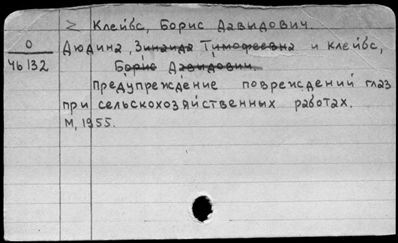 ≥ Клейбс, Борис Давидович.
0 Дюдина, Зинаида Тимофеевна и Клейбс,
46132 Борис Давидович.
Предупреждение повреждений глаз
при сельскохозяйственных работах.
М, 1955.